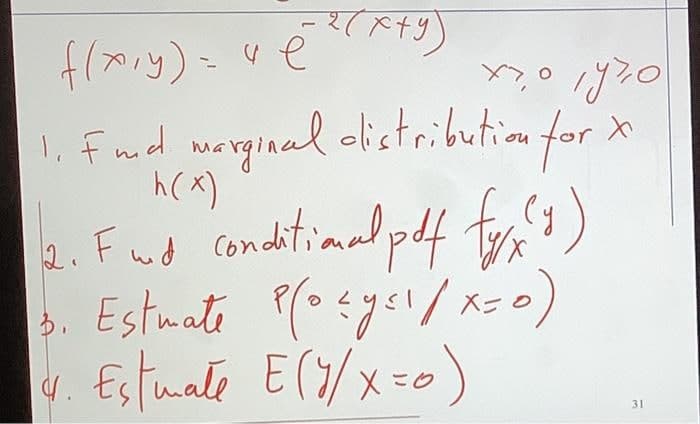 f(x,y) = 4 e^{-2(x+y)} x≥0, y≥0
1. Find marginal distribution for x
h(x)
2. Find conditional pdf f_{y/x}(y)
3. Estmate P(0≤y≤1 / x=0)
4. Estmate E(y/x=0)
31